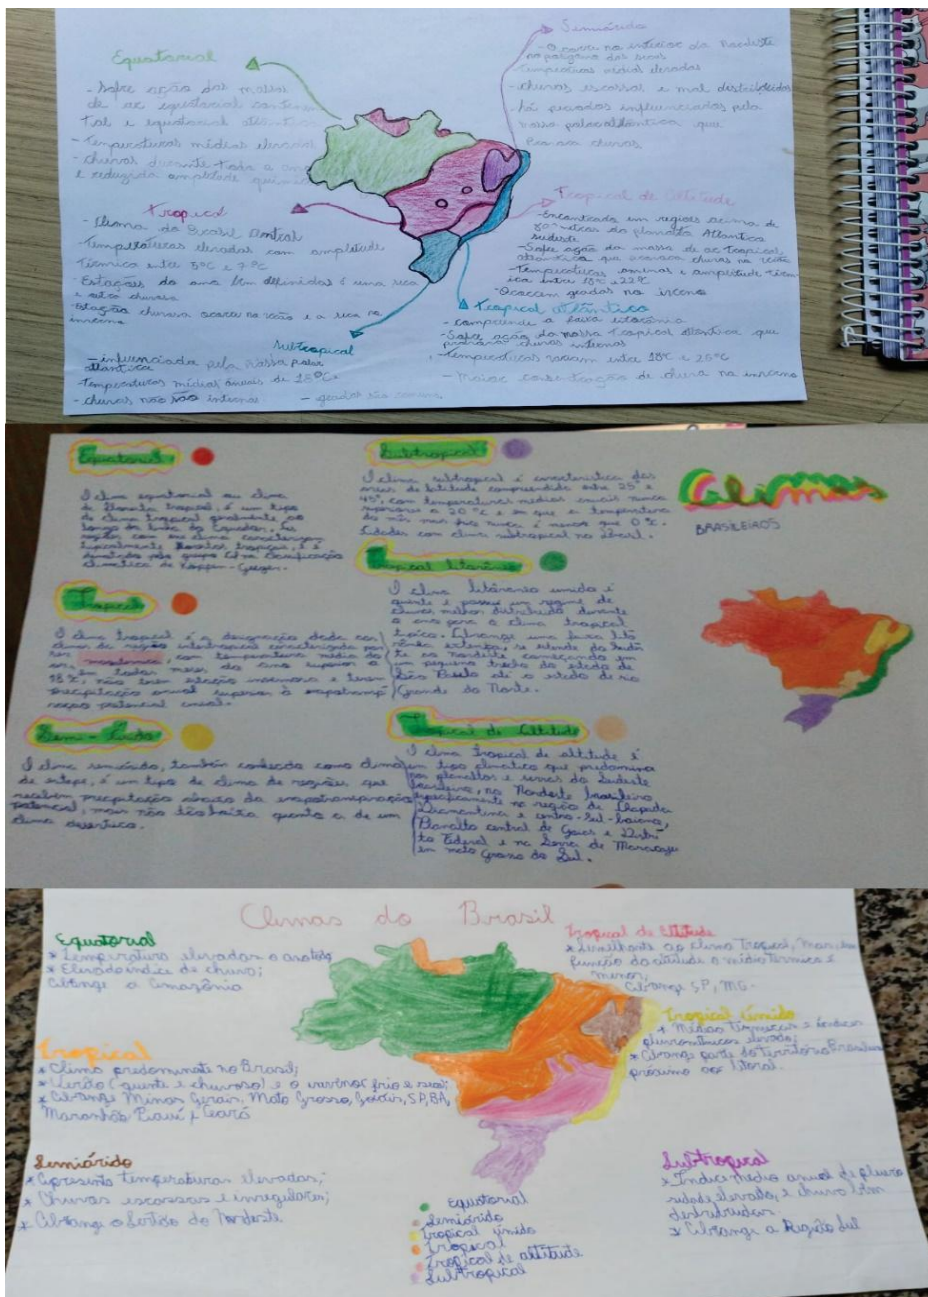 Equatorial
- Sofre ação das massas
de ar equatorial continen
tal e equatorial atlântica
- Temperaturas médias elevadas
- chuvas durante toda o ano
e reduzida amplitude
Tropical
- Clima do Brasil Central
- Temperaturas elevadas com amplitude
Térmica entre 5°C e 7°C
Estações do ano bem definidas é uma seca
e outra chuvosa
- Estação chuvosa ocorre no verão e a seca no
inverno
Subtropical
- influenciada pela Massa polar
atlântica
- Temperaturas médias anuais de 18°C
- chuvas não são intensas - geadas são comuns
Semiárido
- Ocorre no interior da Nordeste
no polígono das secas
- Temperaturas médias elevadas
- chuvas escassas e mal distribuídas
- há períodos influenciados pela
massa polar atlântica que
chuvas
Tropical de Altitude
- Encontrado em regiões acima de
metros do planalto Atlântico
sudeste
- Sofre ação da massa de ar Tropical
atlântica que chuvas no verão
- Temperaturas amenas e amplitude térm
ica entre 18°C e 22°C
- Ocorrem geadas no inverno
Tropical atlântico
- compreende a faixa litorânia
- Sofre ação da massa Tropical atlântica que
chuvas intensas
- Temperaturas variam entre 18°C e 26°C
- Maior concentração de chuva no inverno
Equatorial
O clima equatorial ou clima
de floresta tropical, é um tipo
de clima tropical geralmente ao
longo da linha do Equador,
regiões com esse clima
tipicamente florestas tropicais, é
pelo grupo na classificação
climática de Köppen-Geiger.
Tropical
O clima tropical é a designação dada aos
climas da região intertropical caracterizada por
ser com temperatura média do
ar em todos meses do ano superior a
18°C, não tem estação invernosa e terem
precipitação anual superior à evapotransp
potencial anual.
Semi-Árido
O clima semiárido, também conhecido como clima
de estepe, é um tipo de clima de regiões que
recebem precipitação abaixo da evapotranspiração
potencial, mais não tão baixa quanto a de um
clima desértico.
Subtropical
O clima subtropical é característica das
áreas de latitude compreendida entre 25° e
45°, com temperaturas médias anuais nunca
superiores a 20°C e em que a temperatura
do mês mas frio nunca é menos que 0°C.
Cidades com clima subtropical no Brasil.
Tropical litorâneo
O clima litorâneo umido é
quente e possui um regime de
chuvas melhor distribuido durante
o ano para o clima tropical
típico. Abrange uma faixa lito
rânea extensa, se estende do
te ao Nordeste começando em
um pequeno trecho do estado de
São Paulo até o estado de rio
Grande do Norte.
Tropical de Altitude
O clima tropical de altitude é
um tipo climático que predomina
nos planaltos e serras do Sudeste
brasileiro, no Nordeste brasileiro
especificamente na região de Chapada
Diamantina e centro-sul-baiano,
Planalto central de Goias e Distri
to Federal e na Serra de Maracaju
em mato Grosso do Sul.
Climas
BRASILEIROS
Climas do Brasil
Equatorial
* Temperatura elevadas o ano todo
* Elevado índice de chuva;
Abrange a Amazônia
Tropical
* Clima predominate no Brasil;
* Verão (quente e chuvoso) e o inverno (frio e seco);
* Abrange Minas Gerais, Mato Grosso, Goiás, SP, BA,
Maranhão Piauí e Ceará
Semiárido
* Apresenta temperaturas elevadas;
* Chuvas escassas e irregulares;
* Abrange o Sertão do Nordeste.
Tropical de Altitude
* Semelhante ao clima Tropical, Mas, em
função da altitude a média térmica é
menor;
Abrange SP, MG-
Tropical Úmido
* Médias Térmicas e índices
pluviométricos elevado;
* Abrange parte do território Brasileiro
próximo ao litoral.
Subtropical
* Índice médio anual de pluvio
sidade elevado, e chuva bem
destribuidas
* Abrange a Região Sul
Equatorial
Semiárido
Tropical úmido
Tropical
Tropical de altitude
Subtropical